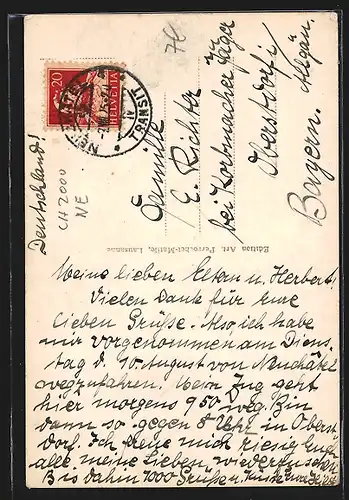 Deutschland!
20
HELVETIA
TRANSIT
CH 2000
NE
Familie
E. Richter
bei Korbmacher Jäger
Oberstdorf i/
Allgäu.
Bayern.
Edition Art. Perrochet-Matile, Lausanne
Meine lieben Eltern u. Herbert!
Vielen Dank für Eure
lieben Grüße. Also, ich habe
mir vorgenommen am Diens-
tag d. 10. August von Neuchâtel
wegzufahren! Mein Zug geht
hier morgens 9 50 weg. Bin
dann so gegen 8 Uhr in Oberst-
dorf. Ich freue mich riesig Euch
alle meine Lieben, wiederzusehen.
Bis dahin 1000 Grüße u. Küsse Eure